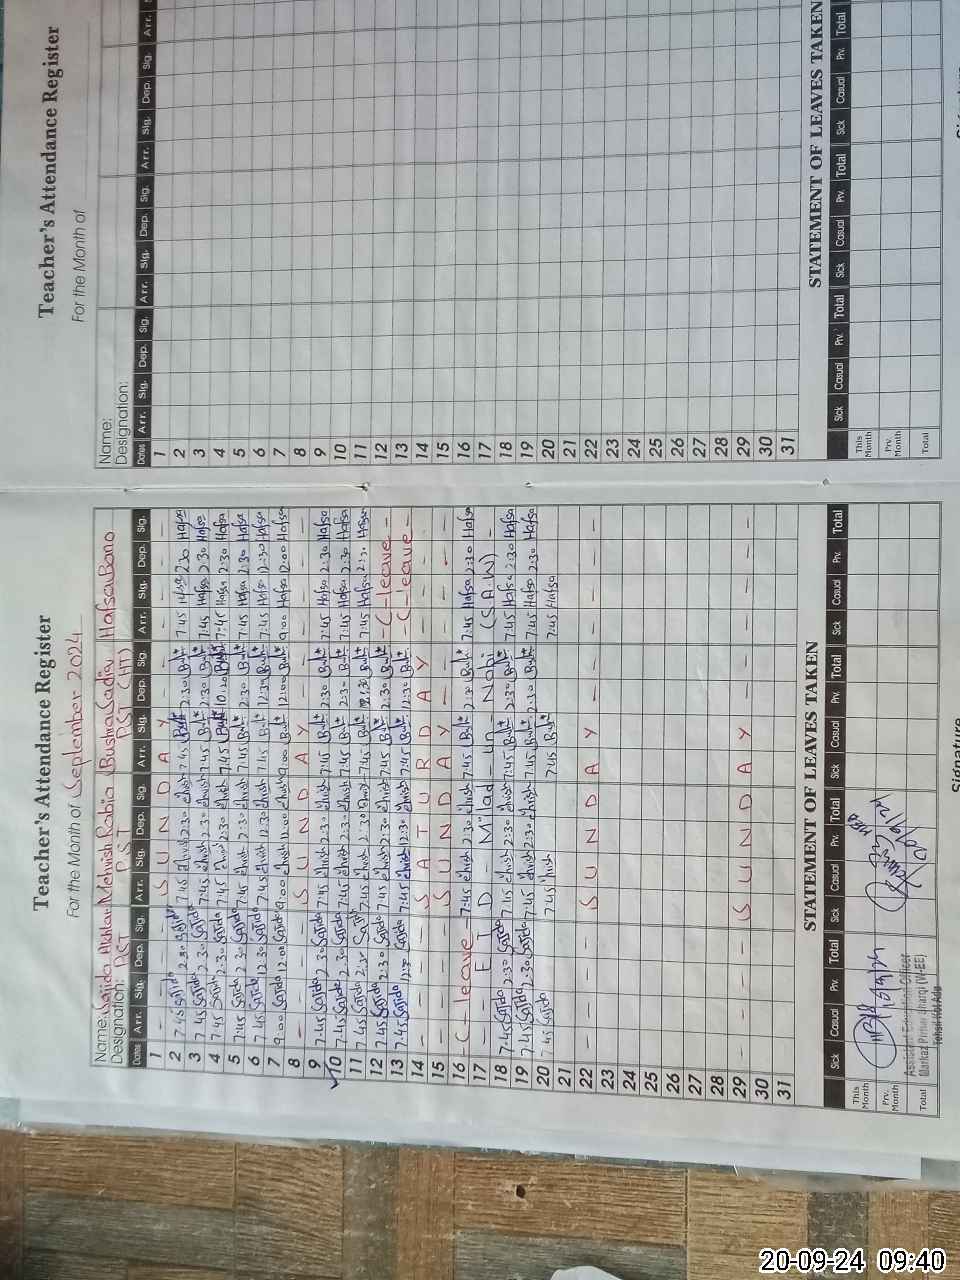 Teacher's Attendance Register
For the Month of September 2024
Name: Sajida Mehvish Rabia Bushra Sadiq Hafsa Bano
Designation: PST PST PST (HT)
Dates Arr. Sig. Dep. Sig. Arr. Sig. Dep. Sig. Arr. Sig. Dep. Sig. Arr. Sig. Dep. Sig.
1 - - - - S U N D A Y - - - -
2 7:45 Sajida 2:30 Sajida 7:45 Ehvish 2:30 Ehvish 7:45 But 2:30 But 7:45 Hafsa 2:30 Hafsa
3 7:45 Sajida 2:30 Sajida 7:45 Ehvish 2:30 Ehvish 7:45 But 2:30 But 7:45 Hafsa 2:30 Hafsa
4 7:45 Sajida 2:30 Sajida 7:45 Ehvish 2:30 Ehvish 7:45 But 10:20 But 7:45 Hafsa 2:30 Hafsa
5 7:45 Sajida 2:30 Sajida 7:45 Ehvish 2:30 Ehvish 7:45 But 2:30 But 7:45 Hafsa 2:30 Hafsa
6 7:45 Sajida 12:30 Sajida 7:45 Ehvish 12:30 Ehvish 7:45 But 12:30 But 7:45 Hafsa 12:30 Hafsa
7 9:00 Sajida 12:00 Sajida 9:00 Ehvish 12:00 Ehvish 9:00 But 12:00 But 9:00 Hafsa 12:00 Hafsa
8 - - - - S U N D A Y - - - -
9 7:45 Sajida 2:30 Sajida 7:45 Ehvish 2:30 Ehvish 7:45 But 2:30 But 7:45 Hafsa 2:30 Hafsa
10 7:45 Sajida 2:30 Sajida 7:45 Ehvish 2:30 Ehvish 7:45 But 2:30 But 7:45 Hafsa 2:30 Hafsa
11 7:45 Sajida 2:30 7:45 Ehvish 2:30 7:45 But But 7:45 Hafsa 2:30 Hafsa
12 7:45 Sajida 2:30 Sajida 7:45 Ehvish 2:30 Ehvish 7:45 But 2:30 But - C-leave -
13 7:45 Sajida 12:30 Sajida 7:45 Ehvish 12:30 Ehvish 7:45 But 12:30 But - C-leave -
14 - - - - S A T U R D A Y - - -
15 - - - - S U N D A Y - - - -
16 - C-leave - 7:45 Ehvish 2:30 Ehvish 7:45 But 2:30 But 7:45 Hafsa 2:30 Hafsa
17 - - - E I D - Milad-un-Nabi (S.A.W) -
18 7:45 Sajida 2:30 Sajida 7:45 Ehvish 2:30 Ehvish 7:45 But 2:30 But 7:45 Hafsa 2:30 Hafsa
19 7:45 Sajida 2:30 Sajida 7:45 Ehvish 2:30 Ehvish 7:45 But 2:30 But 7:45 Hafsa 2:30 Hafsa
20 7:45 Sajida 7:45 Ehvish 7:45 But 7:45 Hafsa
21
22 - - - - S U N D A Y - - - -
23
24
25
26
27
28
29 - - - - S U N D A Y - - - -
30
31
STATEMENT OF LEAVES TAKEN
Sick Casual Prv. Total Sick Casual Prv. Total Sick Casual Prv. Total Sick Casual Prv. Total
This Month
Prv. Month
Total
Assistant Education Officer
Signature
Teacher's Attendance Register
For the Month of
Name:
Designation:
Dates Arr. Sig. Dep. Sig. Arr. Sig. Dep. Sig. Arr. Sig. Dep. Sig. Arr.
1
2
3
4
5
6
7
8
9
10
11
12
13
14
15
16
17
18
19
20
21
22
23
24
25
26
27
28
29
30
31
STATEMENT OF LEAVES TAKEN
STATEMENT OF LEAVES TAKEN
Sick Casual Prv. Total Sick Casual Prv. Total Sick Casual Prv. Total
This Month
Prv. Month
Total
20-09-24 09:40